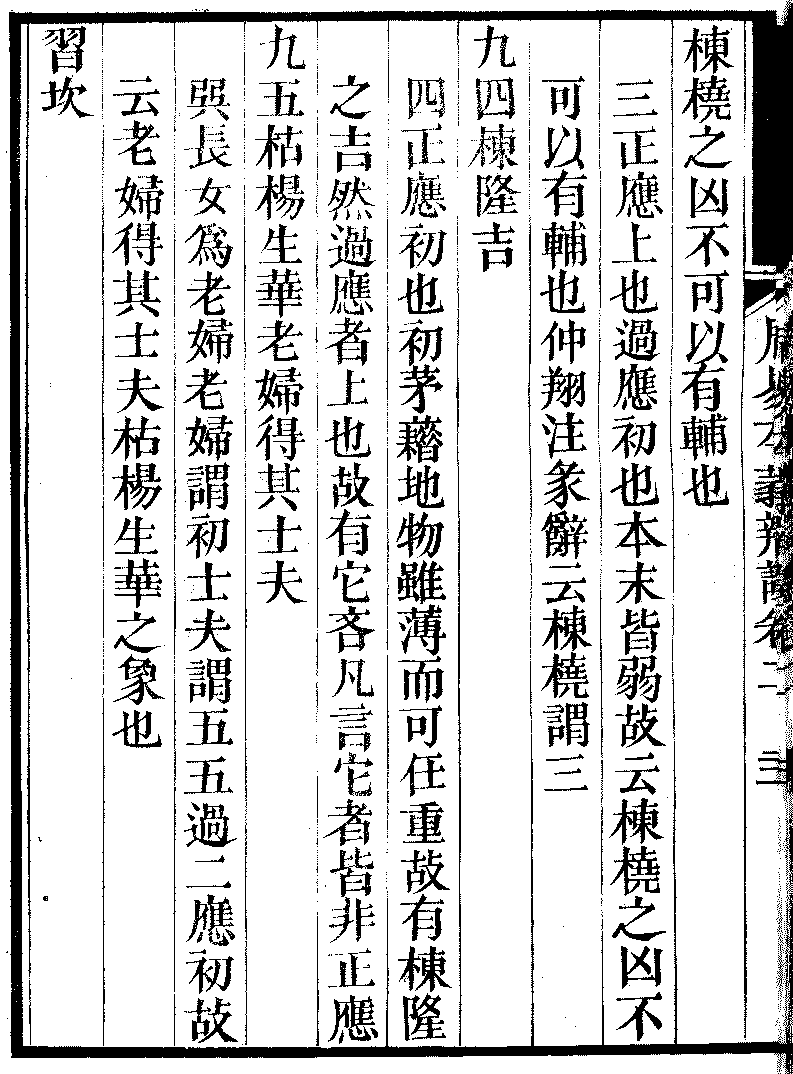 棟橈之凶不可以有輔也
三正應上也過應初也本末皆弱故云棟橈之凶不
可以有輔也仲翔注彖辭云棟橈謂三
九四棟隆吉
四正應初也初茅藉地物雖薄而可任重故有棟隆
之吉然過應者上也故有它吝凡言它者皆非正應
九五枯楊生華老婦得其士夫
巽長女爲老婦老婦謂初士夫謂五五過二應初故
云老婦得其士夫枯楊生華之象也
習坎